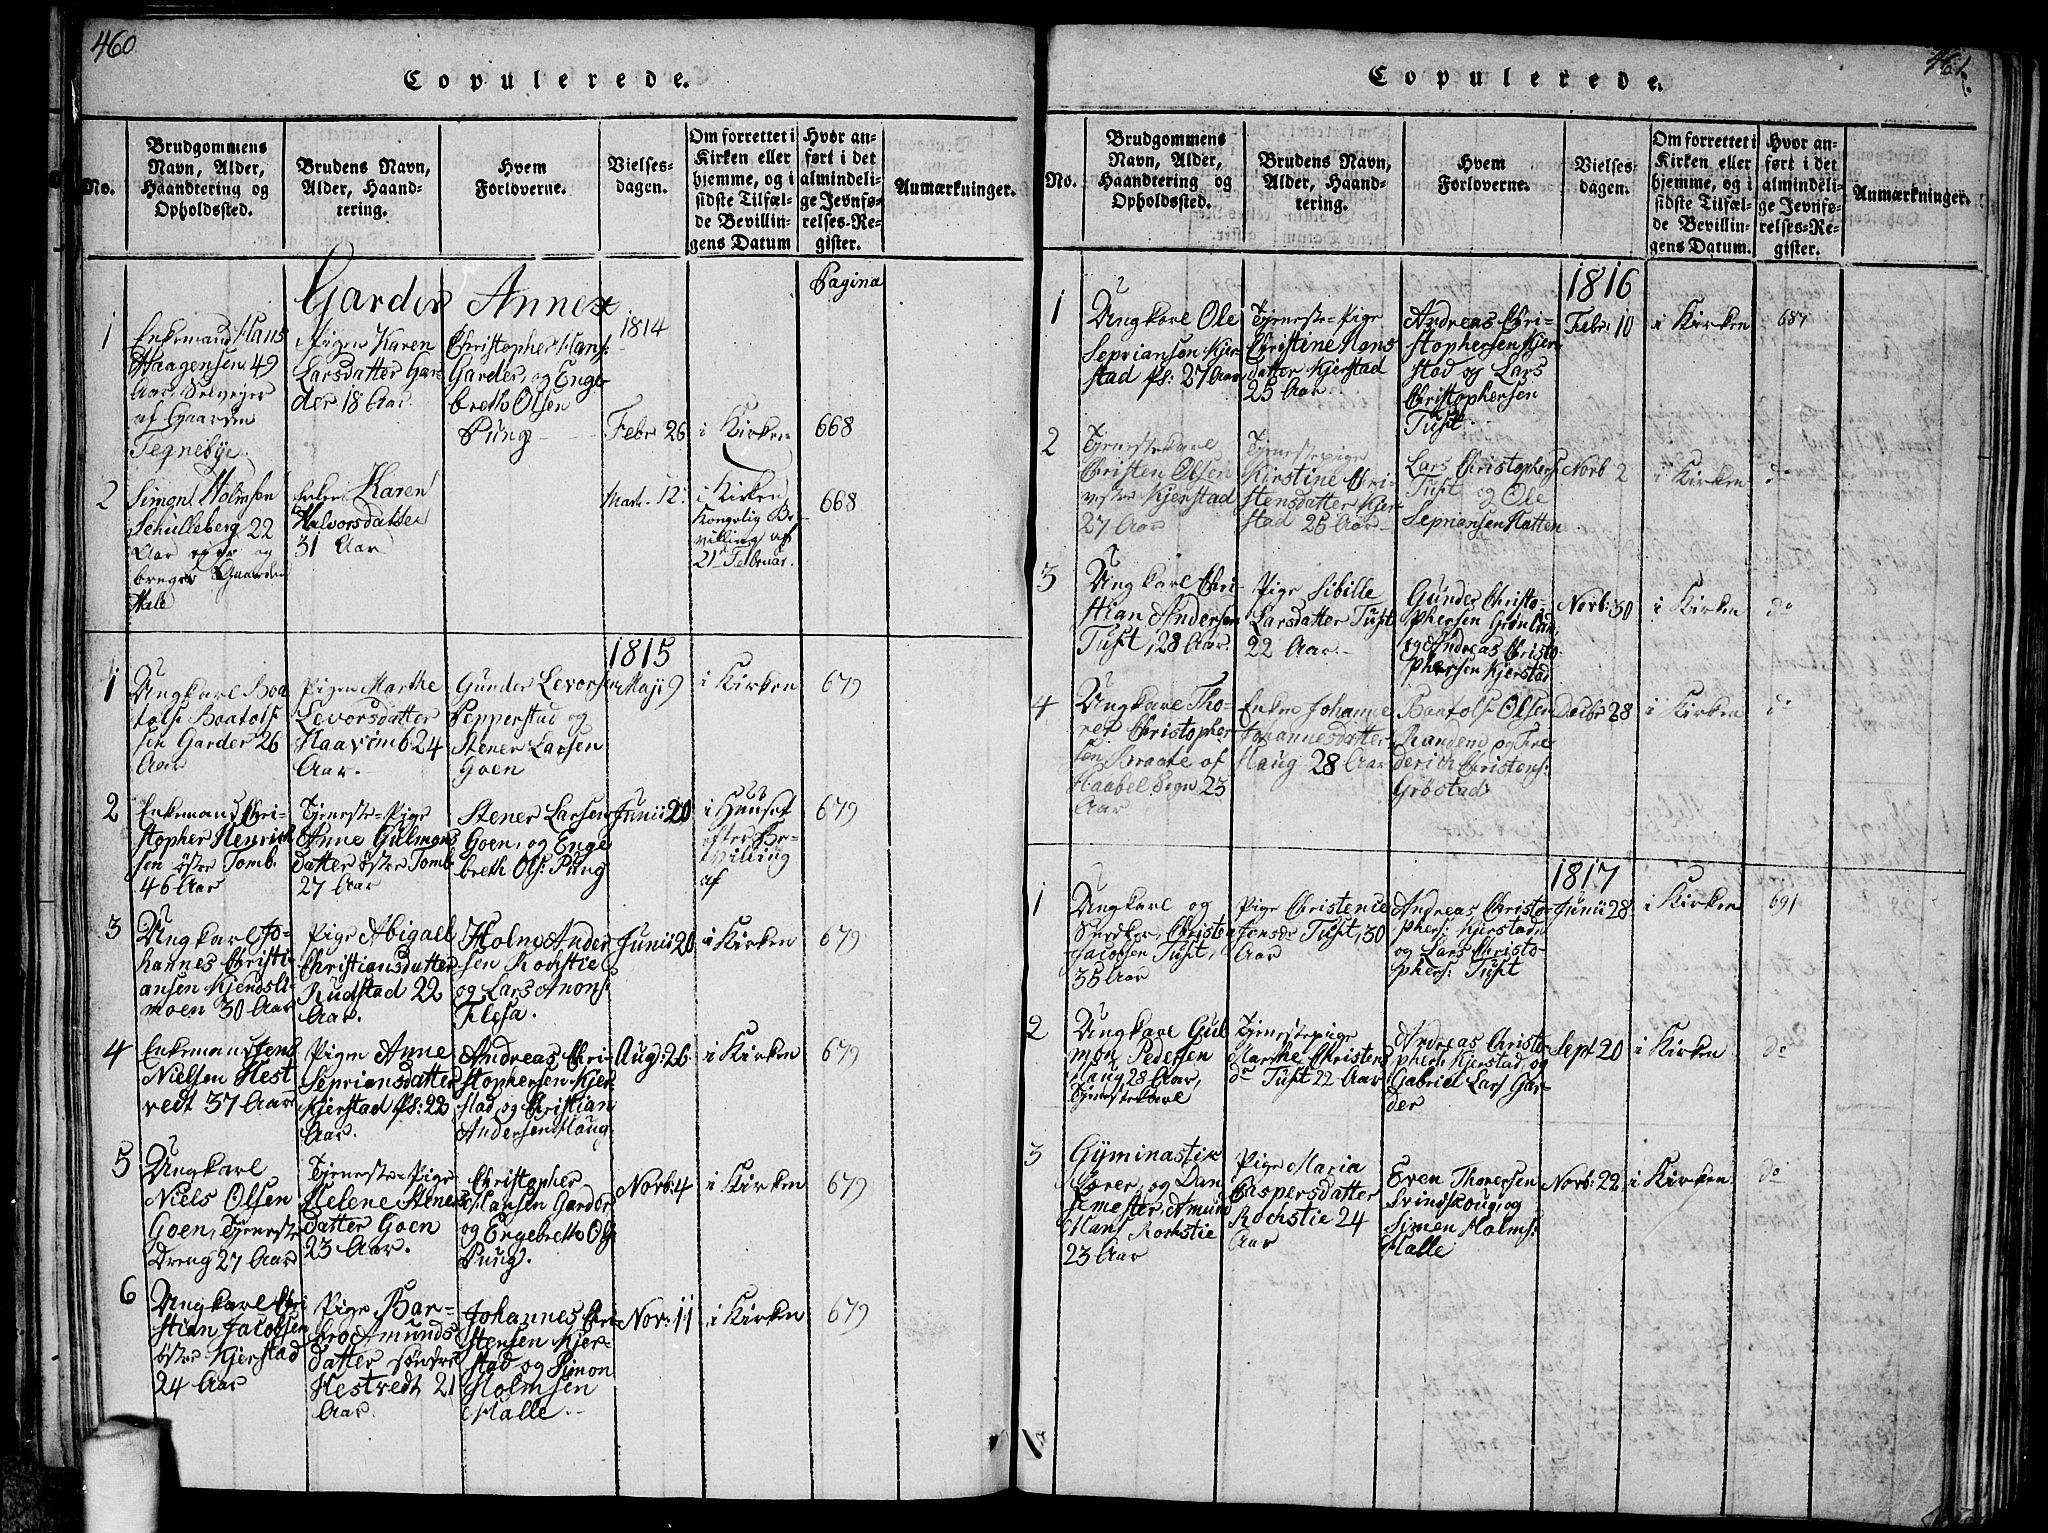 460
Copulerede.
No.
Brudgommens
Navn, Alder,
Haandtering og
Opholdssted.
Brudens Navn,
Alder, Haand-
tering.
Hvem
Forloverne.
Vielses-
dagen.
Om forrettet i
Kirken eller
hjemme, og i
sidste Tilfæl-
de Bevillin-
gens Datum
Hvor an-
ført i det
almindeli-
ge Jevnfø-
relses-Re-
gister.
Anmærkninger.
Garder Annex
Pagina
1814
1
Enkemand Hans
Haagensen 49
Aar, Selvejer
af Gaarden
Tegnebye.
Pigen Karen
Larsdatter Gar-
der 18 Aar
Christopher Hans:
Garder, og Enge-
breth Olsen
Pung
Febr 26
i Kirken
668
2
Simon Holmsen
Schulleberg 22
Aar ejer og
bruger Gaarden
Hale
Enke Karen
Halvorsdatter
31 Aar
Mart. 12.
i Kirken
Kongelig Be-
villing af
21 Februar.
668
1815
1
Ungkarl Boe
tolf Boetolf-
sen Garder 26
Aar
Pigen Marthe
Levorsdatter
Haavimb 24
Aar.
Gunder Levorsen
Pepperstad og
Stener Larsen
Goen
Maji 9
i Kirken
679
2
Enkemand Chri-
stopher Henrich
sen östre Tomb.
46 Aar
Tjeneste-Pige
Anne Gulmons
datter östre Tomb
27 Aar
Stener Larsen
Goen, og Enge
breth Ols: Pung
Junii 20
i Huuset
efter Be-
villing
af
679
3
Ungkarl Jo-
hannes Christi-
ansen Kjendsli-
moen 30 Aar
Pige Abigael
Christiansdatter
Rudstad 22
Aar.
Holm Ander
sen Rochstie
og Lars Anons:
Flesa.
Junii 20
i Kirken
679
4
Enkemand Jens
Nielsen Hest
vedt 37 Aar
Pigen Anne
Sepriansdatter
Kjerstad fs: 22
Aar.
Andreas Chri-
stophersen Kjer-
stad og Christian
Andersen Haug
Aug: 26.
i Kirken
679
5
Ungkarl
Niels Olsen
Goen, Tjeneste
Dreng 27 Aar
Tjeneste-Pige
Helene Steners
datter Goen
23 Aar.
Christopher
Hansen Garder
og Engebreth Ols:
Pung.
Novb: 4
i Kirken
679
6
Ungkarl Chri
stian Jacobsen
östre Kjerstad
24 Aar
Pige Bar-
bro Amunds
datter søndre
Hestvedt 21
Aar.
Johannes Chri-
stensen Kjer-
stad og Simon
Holmsen
Halle.
Nov: 11
i Kirken
679
461.
Copulerede.
No.
Brudgommens
Navn, Alder,
Haandtering og
Opholdssted.
Brudens Navn,
Alder, Haand-
tering.
Hvem
Forloverne.
Vielses-
dagen.
Om forrettet i
Kirken eller
hjemme, og i
sidste Tilfæl-
de Bevillin-
gens Datum.
Hvor an-
ført i det
almindeli-
ge Jevnfø-
relses-Re-
gister.
Anmærkninger.
1816
1
Ungkarl Ole
Sepriansøn Kjer-
stad fs: 27 Aar
Tjeneste-Pige
Christine Hans
datter Kjerstad
25 Aar.
Andreas Chri-
stophersen Kjer-
stad og Lars
Christophersen
Tust.
Febr: 10
i Kirken
687
2
Tjenestekarl
Christen Olsen
vestre Kjerstad
27 Aar
Tjenestepige
Kirstine Chri-
stensdatter Kjer
stad 25 Aar
Lars Christophers
Tust og Ole
Sepriansen Natten
Novb 2
i Kirken
do
3
Ungkarl Chri-
stian Andersen
Tust, 28 Aar.
Pige Sibille
Larsdatter Tust
22 Aar.
Gunder Christo-
phersen Grønlun,
og Andreas Christo
phersen Kjerstad
Novb: 30
i Kirken
do
4
Ungkarl Tho-
rer Christopher-
sen Kraake af
Haabel Sogn 23
Aar
Enke Johanne
Johannesdatter
Haug 28 Aar
Baetolf Olsen
Randem og Fre
derich Christens:
Grøstad
Decbr 28
i Kirken
do
1817
1
Ungkarl og
Snedker, Christen
Jacobsen Tust,
35 Aar
Pige Christence
Jensdr Tust, 30
Aar
Andreas Christo-
phers: Kjerstad
og Lars Christo-
phers: Tust
Junii 28
i Kirken
691
2
Ungkarl Gul
mon Pedersen
Haug 28 Aar,
Tjenestekarl
Tjenestepige
Marthe Christens
dr Tust 22 Aar
Andreas Christo-
phers: Kjerstad, og
Gabriel Lars Gar-
der
Sept 20
i Kirken
do
3
Gyminastik
Lærer, og Dan
semester, Amund
Hans Rochstie
23 Aar
Pige Maria
Caspersdatter
Rochstie 24
Aar
Even Thoresen
Svindskoug, og
Simen Holms:
Halle
Novb: 22
i Kirken
do